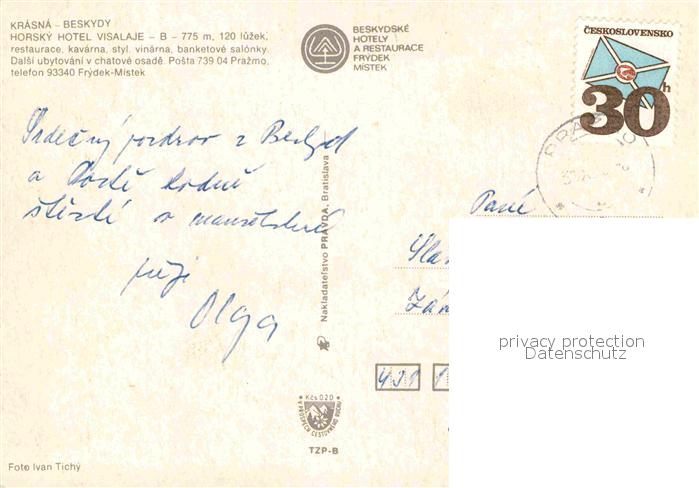 KRÁSNÁ - BESKYDY
HORSKÝ HOTEL VISALAJE - B - 775 m, 120 lůžek,
restaurace, kavárna, styl. vinárna, banketové salónky.
Další ubytování v chatové osadě. Pošta 739 04 Pražmo,
telefon 93340 Frýdek-Místek
BESKYDSKÉ
HOTELY
A RESTAURACE
FRÝDEK
MÍSTEK
ČESKOSLOVENSKO
30h
Srdečný pozdrav z Beskyd
a hodně
štěstí v manželství
přeji
Olga
Nakladatelství PRAVDA, Bratislava
Paní
431
Kčs 0.20
V PROSPĚCH CESTOVNÉHO RUCHU
TZP-B
Foto Ivan Tichý
privacy protection
Datenschutz